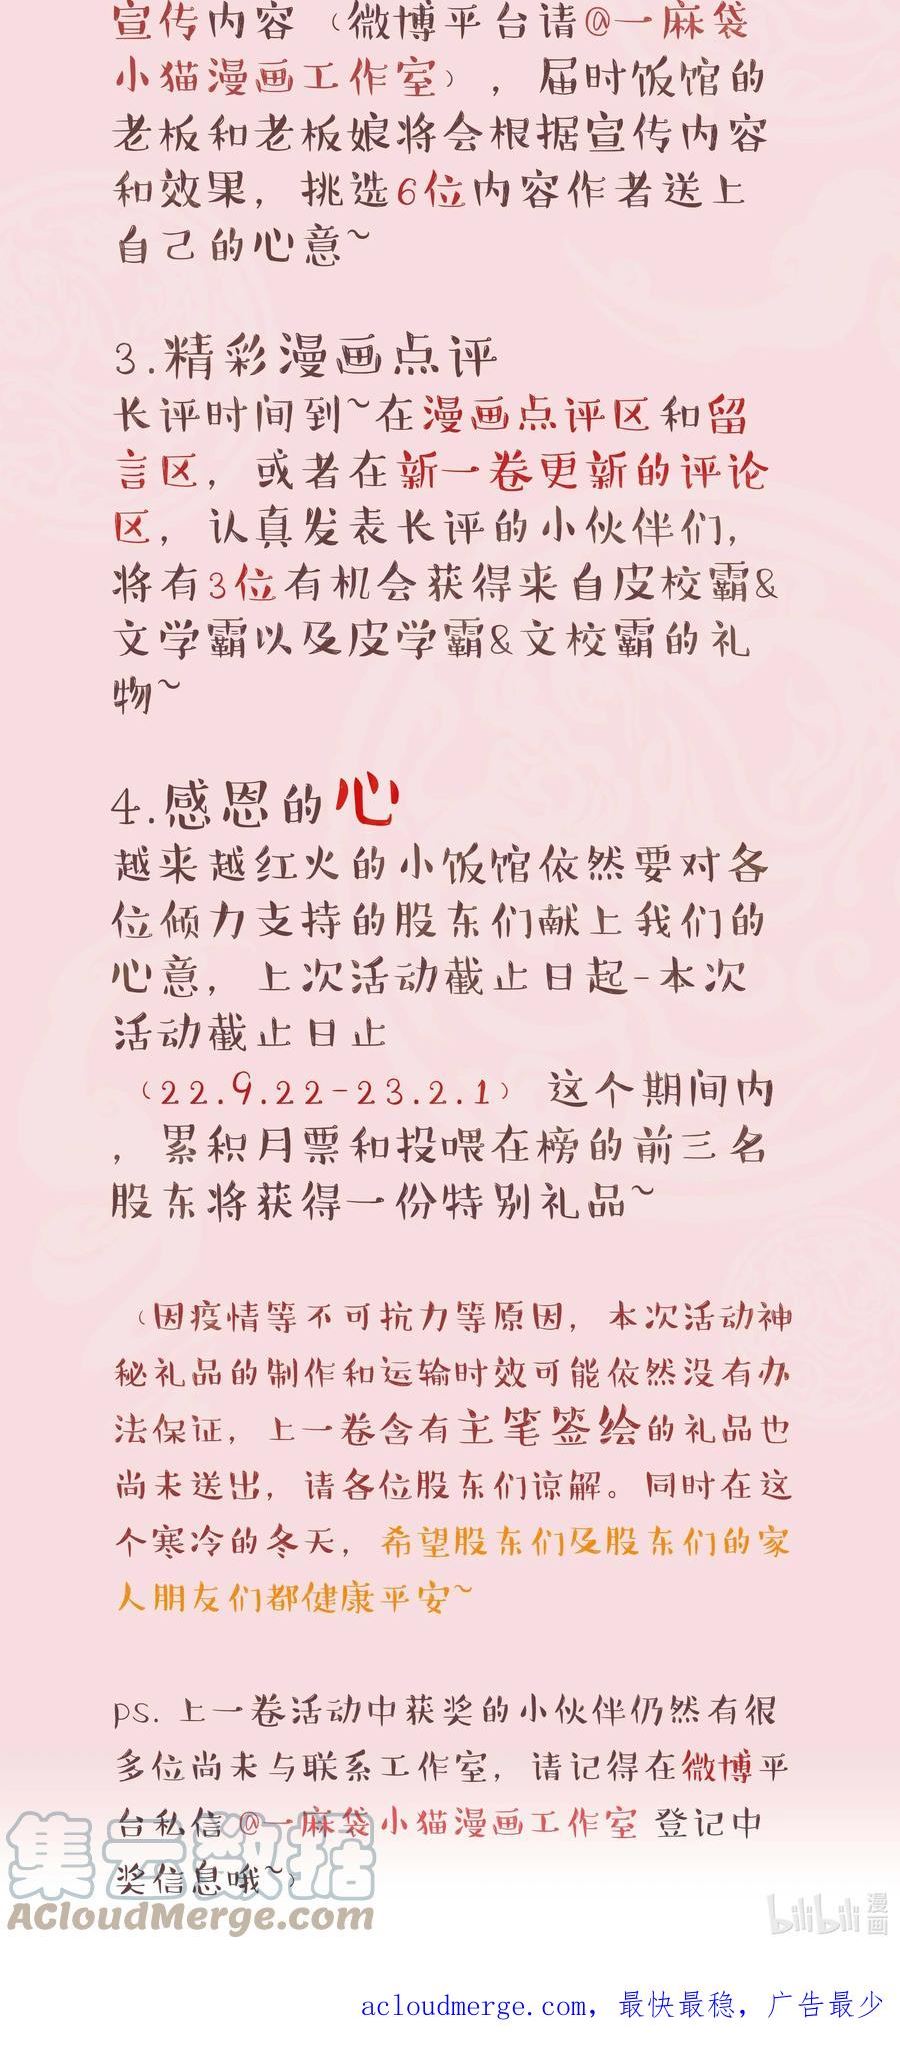 宣传内容（微博平台请@一麻袋
小猫漫画工作室），届时饭馆的
老板和老板娘将会根据宣传内容
和效果，挑选6位内容作者送上
自己的心意~
3.精彩漫画点评
长评时间到~在漫画点评区和留
言区，或者在新一卷更新的评论
区，认真发表长评的小伙伴们，
将有3位有机会获得来自皮校霸&
文学霸以及皮学霸&文校霸的礼
物~
4.感恩的心
越来越红火的小饭馆依然要对各
位倾力支持的股东们献上我们的
心意，上次活动截止日起-本次
活动截止日止
（22.9.22-23.2.1）这个期间内
，累积月票和投喂在榜的前三名
股东将获得一份特别礼品~
（因疫情等不可抗力等原因，本次活动神
秘礼品的制作和运输时效可能依然没有办
法保证，上一卷含有主笔签绘的礼品也
尚未送出，请各位股东们谅解。同时在这
个寒冷的冬天，希望股东们及股东们的家
人朋友们都健康平安~
ps.上一卷活动中获奖的小伙伴仍然有很
多位尚未与联系工作室，请记得在微博平
台私信@一麻袋小猫漫画工作室 登记中
奖信息哦~）
集云数据
ACloudMerge.com
bilibili 漫画
acloudmerge.com，最快最稳，广告最少